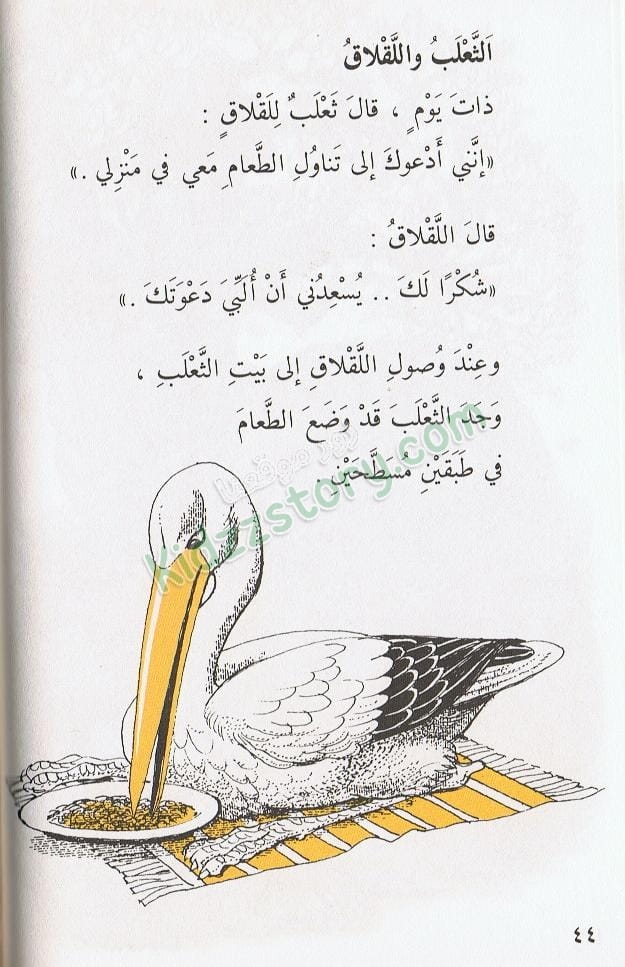 اَلثَّعْلَبُ واللَّقْلاقُ
ذاتَ يَوْمٍ ، قالَ ثَعْلَبٌ لِلَقْلاقٍ :
«إنَّني أَدْعوكَ إلى تَناوُلِ الطَّعامِ مَعي في مَنْزِلي .»
قالَ اللَّقْلاقُ :
«شُكْرًا لَكَ .. يُسْعِدُني أَنْ أُلَبِّيَ دَعْوَتَكَ .»
وعِنْدَ وُصولِ اللَّقْلاقِ إلى بَيْتِ الثَّعْلَبِ ،
وَجَدَ الثَّعْلَبَ قَدْ وَضَعَ الطَّعامَ
في طَبَقَيْنِ مُسَطَّحَيْنِ .
زور موقعنا
Kidzzstory.com
٤٤